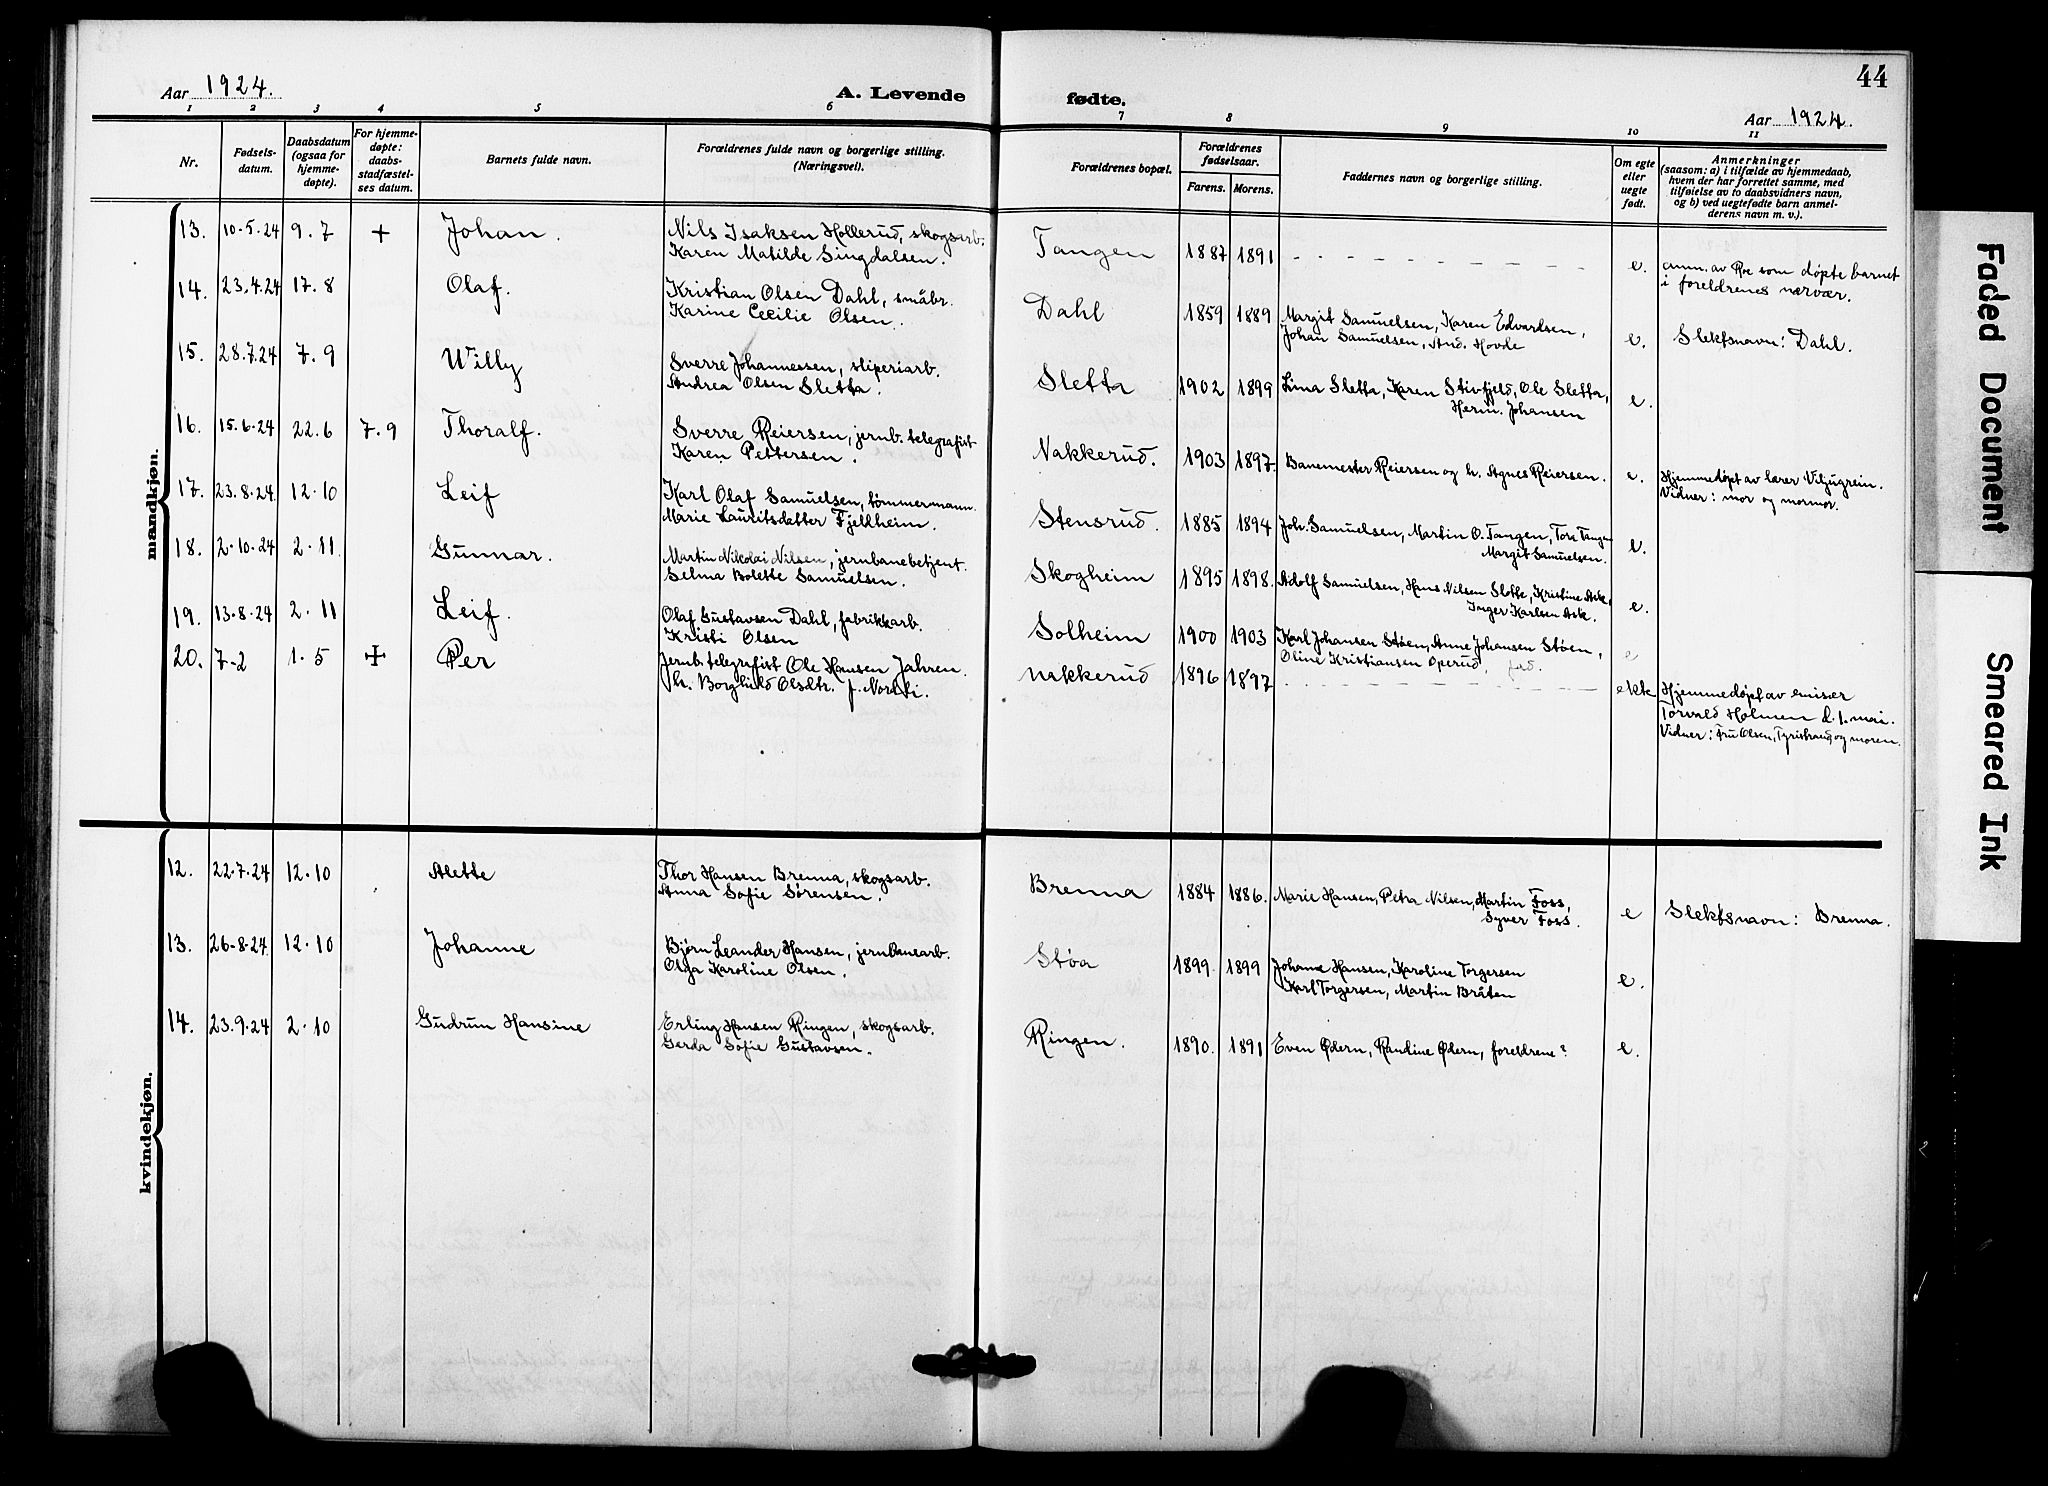 44
Aar 1924.
A. Levende fødte.
Aar 1924.
1 2 3 4 5 6 7 8 9 10 11
Nr.
Fødsels-
datum.
Daabsdatum
(ogsaa for
hjemme-
døpte).
For hjemme-
døpte:
daabs-
stadfæstel-
ses datum.
Barnets fulde navn.
Forældrenes fulde navn og borgerlige stilling.
(Næringsvei).
Forældrenes bopæl.
Forældrenes
fødselsaar.
Farens. Morens.
Faddernes navn og borgerlige stilling.
Om egte
eller
uegte
født.
Anmerkninger
(saasom: a) i tilfælde av hjemmedaab,
hvem der har forrettet samme, med
tilføielse av to daabsvidners navn,
og b) ved uegtefødte barn anmel-
derens navn m. v.).
mandkjøn.
13. 10-5-24 9.7 + Johan.
Nils Isaksen Hollerud, skogsarb.
Karen Matilde Singdalsen.
Tangen 1887 1891 - - - - e.
anm. av Roe som døpte barnet
i foreldrenes nærvær.
14. 23.4.24 17.8 Olaf.
Kristian Olsen Dahl, småbr.
Karine Cecilie Olsen.
Dahl 1859 1889
Margit Samuelsen, Karen Edvardsen,
Johan Samuelsen, And. Hovde
e. Slektsnavn: Dahl.
15. 28.7.24 7.9 Willy
Sverre Johannessen, sliperiarb.
Andrea Olsen Sletta.
Sletta 1902 1899
Lina Sletta, Karen Stivfjeld, Ole Sletta,
Herm. Johansen
e.
16. 15.6.24 22.6 7.9 Thoralf.
Sverre Reiersen, jernb. telegrafist
Karen Pettersen.
Nakkerud. 1903 1897. Banemester Reiersen og h. Agnes Reiersen. e.
Hjemmedøpt av lærer Viljugrein.
Vidner: mor og mormor.
17. 23.8.24 12.10 Leif
Karl Olaf Samuelsen, tømmermann.
Marie Lauritsdatter Fjellheim.
Stensrud. 1885 1894
Joh. Samuelsen, Martin O. Tangen, Tora Tangen
Margit Samuelsen.
e.
18. 2-10-24 2.11 Gunnar.
Martin Nikolai Nilsen, jernbanebetjent.
Selma Bolette Samuelsen.
Skogheim 1895 1898.
Adolf Samuelsen, Hans Nilsen Slotte, Kristine Ask,
Inger Karlsen Ask.
e.
19. 13-8-24 2.11 Leif.
Olaf Gustavsen Dahl, fabrikkarb.
Kristi Olsen
Solheim 1900 1903
Karl Johansen Støen, Anne Johansen Støen,
Oline Kristiansen Operud, fad.
e
20. 7-2 1.5 + Per
Jernb. telegrafist Ole Hansen Jahren
h. Borghild Olsdtr. f. Nordli.
Nakkerud 1896 1897 - - - - ekte
Hjemmedøpt av emisær
Torvald Holmen d. 1. mai.
Vidner: Fru Olsen, Tyristrand og moren.
kvindekjøn.
12. 22.7.24 12.10 Alette
Thor Hansen Brenna, skogsarb.
Anna Sofie Sørensen.
Brenna 1884 1886.
Marie Hansen, Petra Nilsen, Martin Foss,
Syver Foss.
e Slektsnavn: Brenna.
13. 26-8-24 12.10 Johanne
Bjørn Leander Hansen, jernbanearb.
Olga Karoline Olsen.
Støa 1899. 1899
Johanne Hansen, Karoline Torgersen
Karl Torgersen, Martin Bråten
e.
14. 23.9.24 2.10 Gudrun Hansine
Erling Hansen Ringen, skogsarb.
Gerda Sofie Gustavsen.
Ringen. 1890. 1891 Even Ødern, Randine Ødern, foreldrene? e.
Faded Document
Smeared Ink